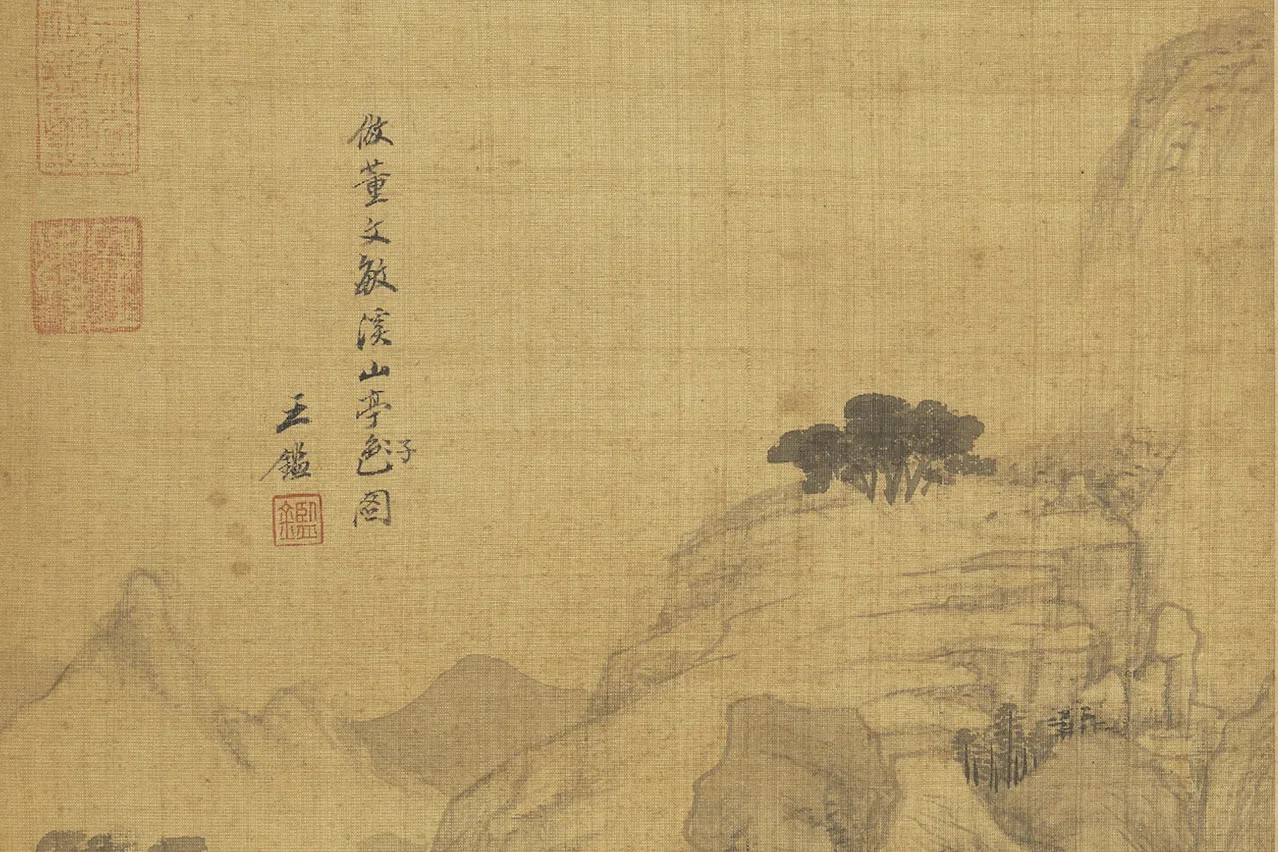 倣董文敏溪山亭色子圖
王鑑
鑑